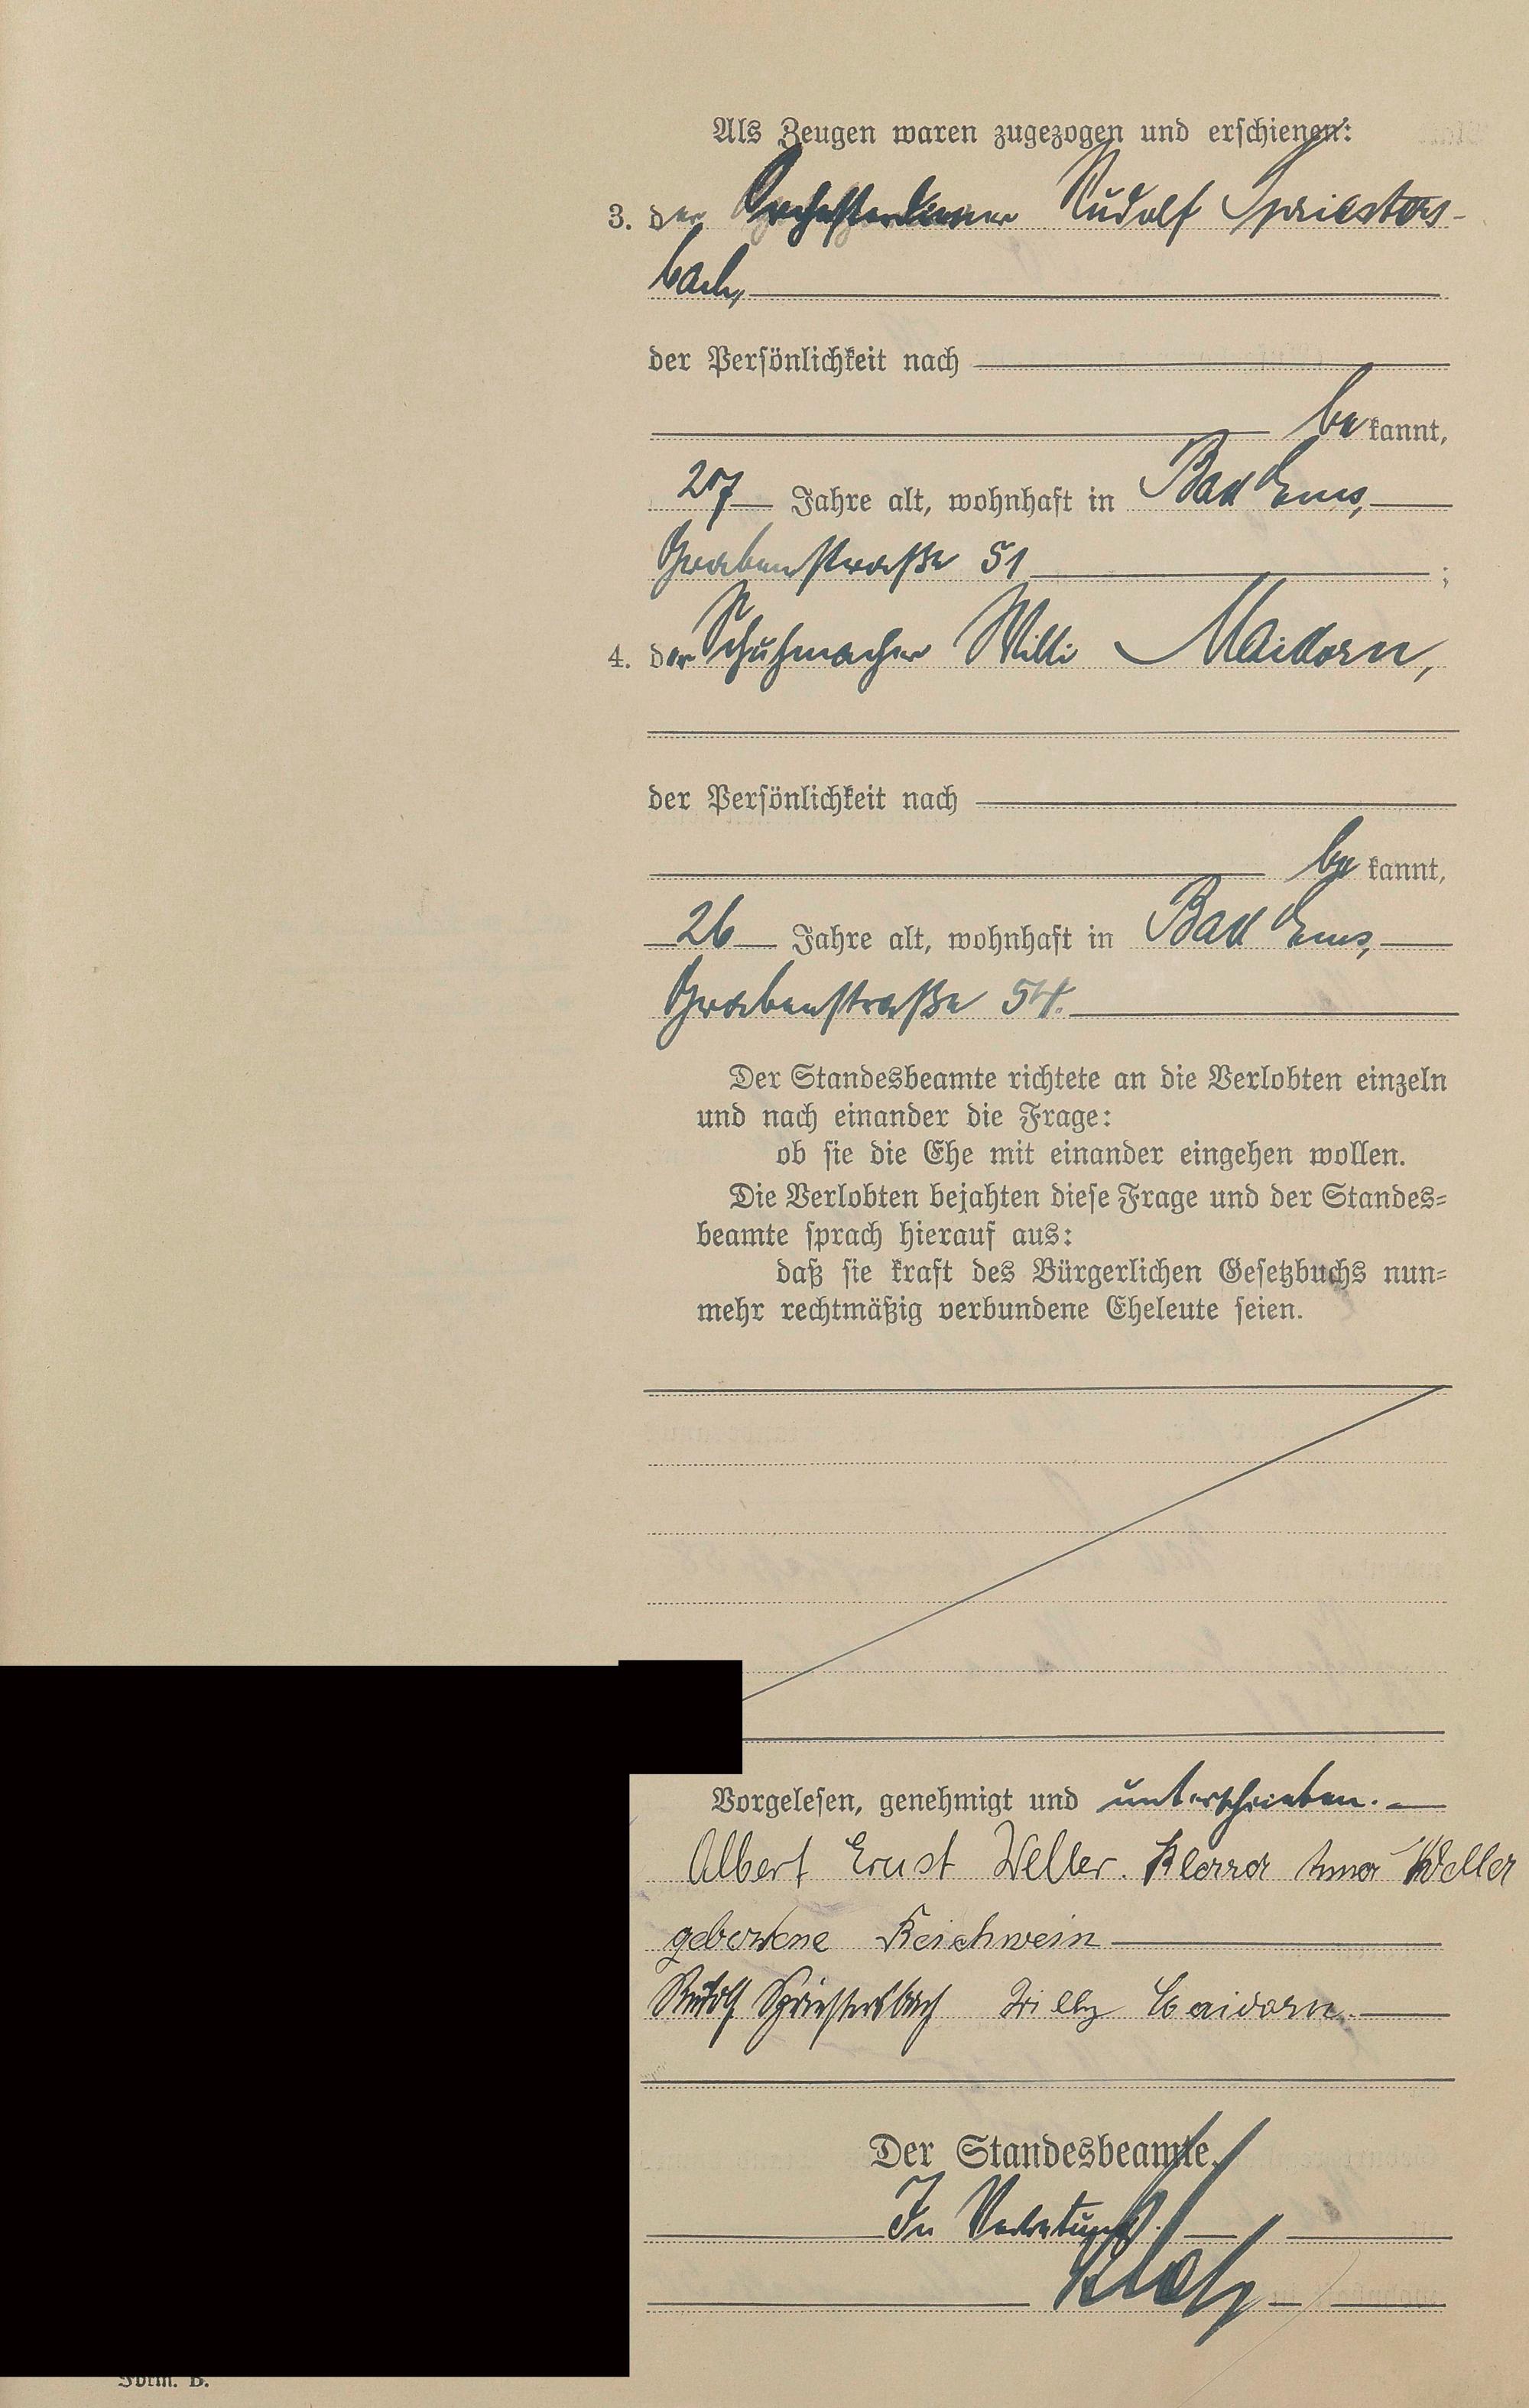 Als Zeugen waren zugezogen und erschienen:
3. der Orchesterdiener Rudolf Spriesters-
bach,
der Persönlichkeit nach
be kannt,
27 Jahre alt, wohnhaft in Bad Ems,
Grabenstraße 51 ;
4. der Schuhmacher Willi Maidorn,
der Persönlichkeit nach
be kannt,
26 Jahre alt, wohnhaft in Bad Ems,
Grabenstraße 54.
Der Standesbeamte richtete an die Verlobten einzeln
und nach einander die Frage:
ob sie die Ehe mit einander eingehen wollen.
Die Verlobten bejahten diese Frage und der Standes=
beamte sprach hierauf aus:
daß sie kraft des Bürgerlichen Gesetzbuchs nun=
mehr rechtmäßig verbundene Eheleute seien.
Vorgelesen, genehmigt und unterschrieben.
Albert Ernst Weller. Klara Anna Weller
geborene Reichwein
Rudolf Spriestersbach Willy Maidorn.
Der Standesbeamte.
In Vertretung.
Klotz
Form. B.